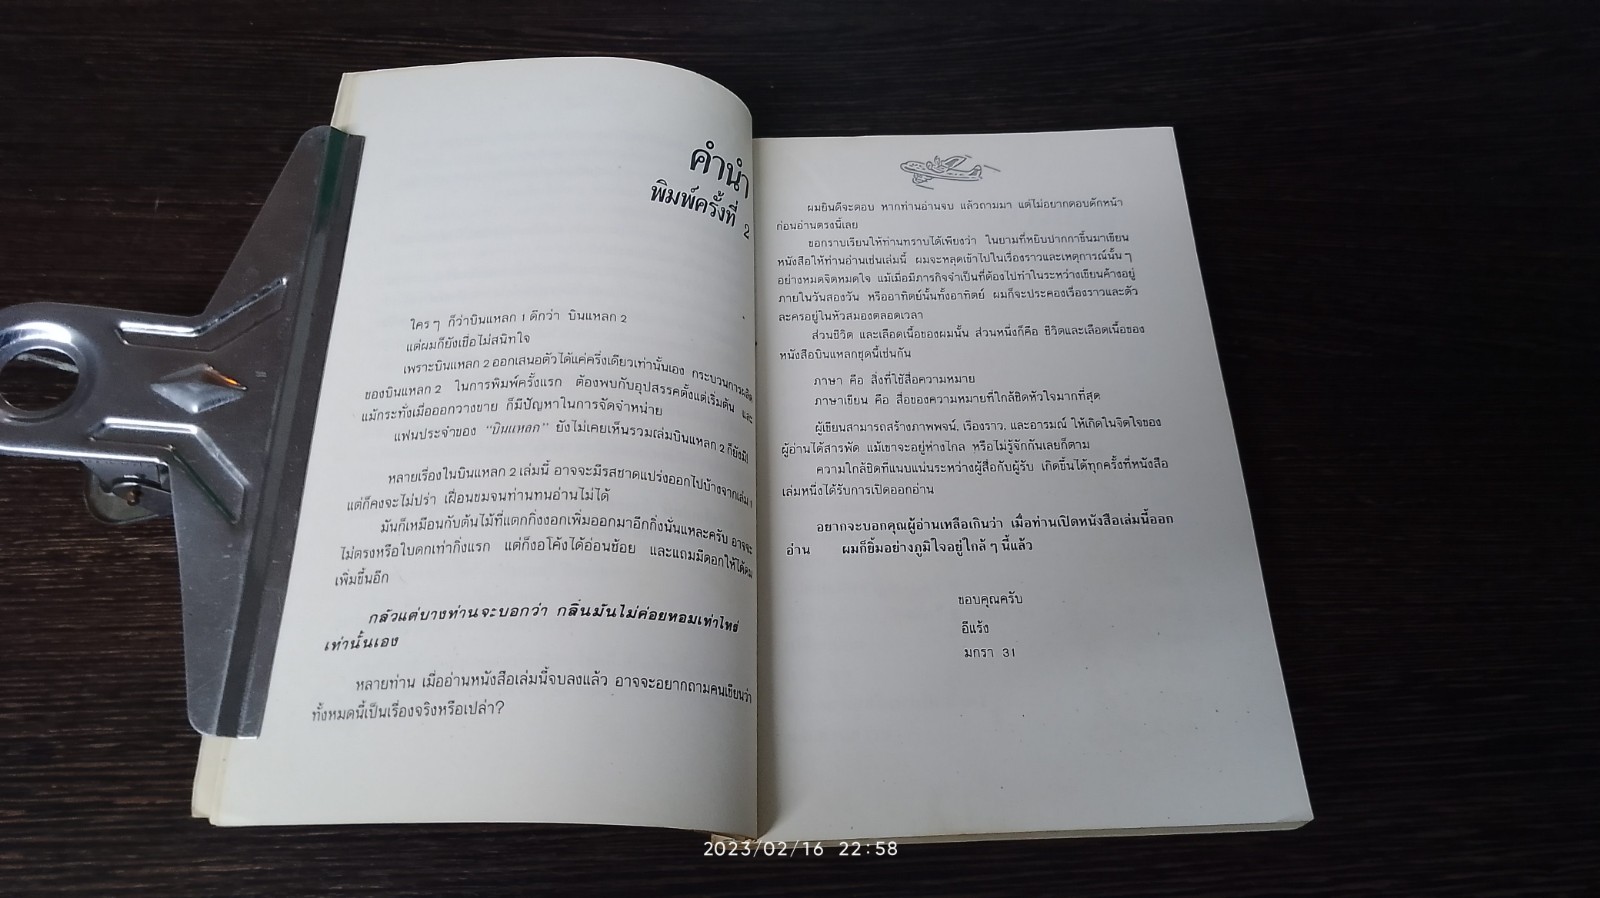 คำนำ
พิมพ์ครั้งที่ 2
ใครๆ ก็ว่าบินแหลก 1 ดีกว่า บินแหลก 2
แต่ผมก็ยังเชื่อไม่สนิทใจ
เพราะบินแหลก 2 ออกเสนอตัวได้แค่ครึ่งเดียวเท่านั้นเอง กระบวนการผลิต
ของบินแหลก 2 ในการพิมพ์ครั้งแรก ต้องพบกับอุปสรรคตั้งแต่เริ่มต้น และ
แม้กระทั่งเมื่อออกวางขาย ก็มีปัญหาในการจัดจำหน่าย
แฟนประจำของ "บินแหลก" ยังไม่เคยเห็นรวมเล่มบินแหลก 2 ก็ยังมี!
หลายเรื่องในบินแหลก 2 เล่มนี้ อาจจะมีรสชาดแปร่งออกไปบ้างจากเล่ม 1
แต่ก็คงจะไม่ปร่า เฝื่อนขมจนท่านทนอ่านไม่ได้
มันก็เหมือนกับต้นไม้ที่แตกกิ่งงอกเพิ่มออกมาอีกกิ่งนั่นแหละครับ อาจจะ
ไม่ตรงหรือใบดกเท่ากิ่งแรก แต่ก็งอโค้งได้อ่อนช้อย และแถมมีดอกให้ได้ดม
เพิ่มขึ้นอีก
กลัวแต่บางท่านจะบอกว่า กลิ่นมันไม่ค่อยหอมเท่าไหร่
เท่านั้นเอง
หลายท่าน เมื่ออ่านหนังสือเล่มนี้จบลงแล้ว อาจจะอยากถามคนเขียนว่า
ทั้งหมดนี้เป็นเรื่องจริงหรือเปล่า?
ผมยินดีจะตอบ หากท่านอ่านจบ แล้วถามมา แต่ไม่อยากตอบดักหน้า
ก่อนอ่านตรงนี้เลย
ขอกราบเรียนให้ท่านทราบได้เพียงว่า ในยามที่หยิบปากกาขึ้นมาเขียน
หนังสือให้ท่านอ่านเช่นเล่มนี้ ผมจะหลุดเข้าไปในเรื่องราวและเหตุการณ์นั้นๆ
อย่างหมดจิตหมดใจ แม้เมื่อมีภารกิจจำเป็นที่ต้องไปทำในระหว่างเขียนค้างอยู่
ภายในวันสองวัน หรืออาทิตย์นั้นทั้งอาทิตย์ ผมก็จะประคองเรื่องราวและตัว
ละครอยู่ในหัวสมองตลอดเวลา
ส่วนชีวิต และเลือดเนื้อของผมนั้น ส่วนหนึ่งก็คือ ชีวิตและเลือดเนื้อของ
หนังสือบินแหลกชุดนี้เช่นกัน
ภาษา คือ สิ่งที่ใช้สื่อความหมาย
ภาษาเขียน คือ สื่อของความหมายที่ใกล้ชิดหัวใจมากที่สุด
ผู้เขียนสามารถสร้างภาพพจน์, เรื่องราว, และอารมณ์ ให้เกิดในจิตใจของ
ผู้อ่านได้สารพัด แม้เขาจะอยู่ห่างไกล หรือไม่รู้จักกันเลยก็ตาม
ความใกล้ชิดที่แนบแน่นระหว่างผู้สื่อกับผู้รับ เกิดขึ้นได้ทุกครั้งที่หนังสือ
เล่มหนึ่งได้รับการเปิดออกอ่าน
อยากจะบอกคุณผู้อ่านเหลือเกินว่า เมื่อท่านเปิดหนังสือเล่มนี้ออก
อ่าน ผมก็ยิ้มอย่างภูมิใจอยู่ใกล้ๆ นี้แล้ว
ขอบคุณครับ
อีแร้ง
มกรา 31
2023/02/16 22:58